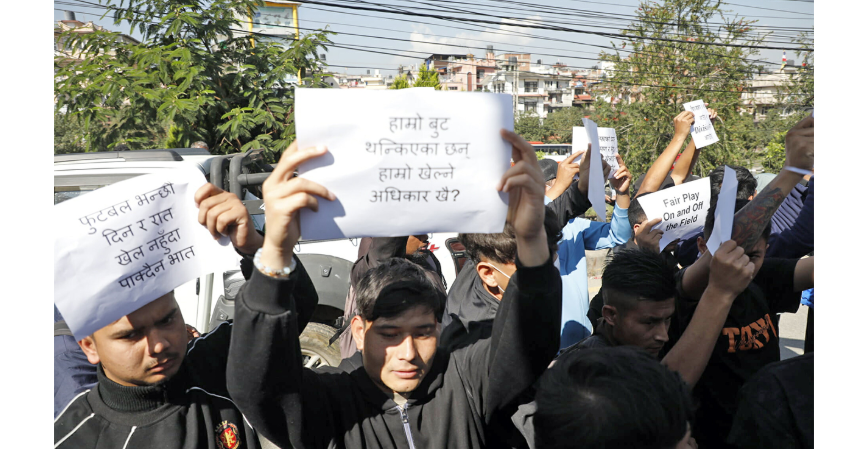 फुटबल भन्छौ
दिन र रात
खेल नहुँदा
पाक्दैन भात
हाम्रो बुट
थन्किएका छन्
हाम्रो खेल्ने
अधिकार खै?
Fair Play
On and Off
the Field
TOKYO